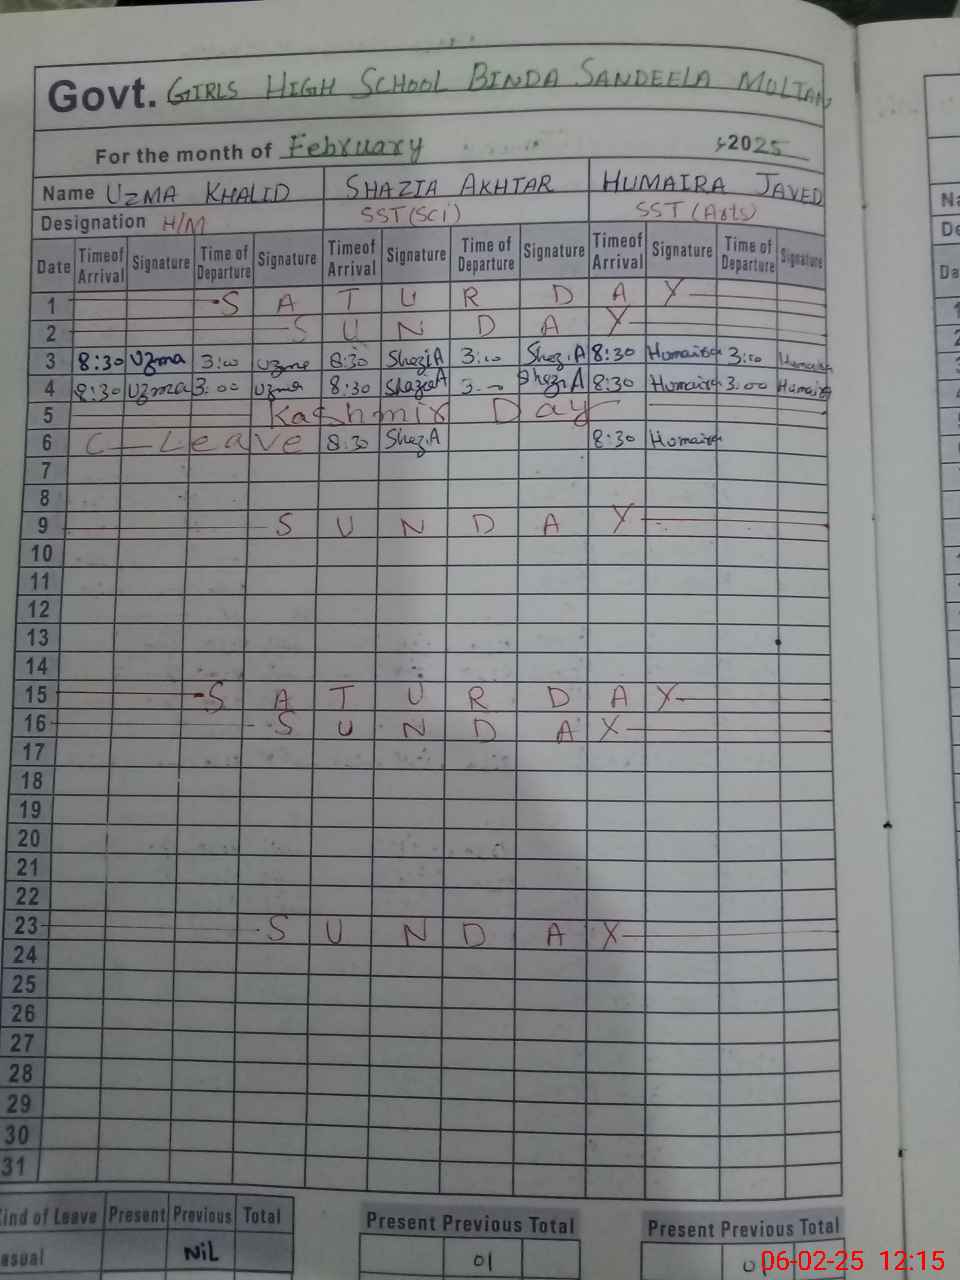 Govt. GIRLS HIGH SCHOOL BINDA SANDEELA MULTAN
For the month of February 2025
Name UZMA KHALID SHAZIA AKHTAR HUMAIRA JAVED
Designation H/M SST(Sci) SST (Arts)
Date Timeof Arrival Signature Time of Departure Signature Timeof Arrival Signature Time of Departure Signature Timeof Arrival Signature Time of Departure Signature
1 SATURDAY
2 SUNDAY
3 8:30 Uzma 3:00 Uzma 8:30 ShaziA 3:00 ShaziA 8:30 Humaira 3:00 Humaira
4 8:30 Uzma 3:00 Uzma 8:30 ShaziA 3:00 ShaziA 8:30 Humaira 3:00 Humaira
5 Kashmir Day
6 C-Leave 8:30 ShaziA 8:30 Humaira
7
8
9 SUNDAY
10
11
12
13
14
15 SATURDAY
16 SUNDAY
17
18
19
20
21
22
23 SUNDAY
24
25
26
27
28
29
30
31
Kind of Leave Present Previous Total Present Previous Total Present Previous Total
Casual NiL 01
06-02-25 12:15